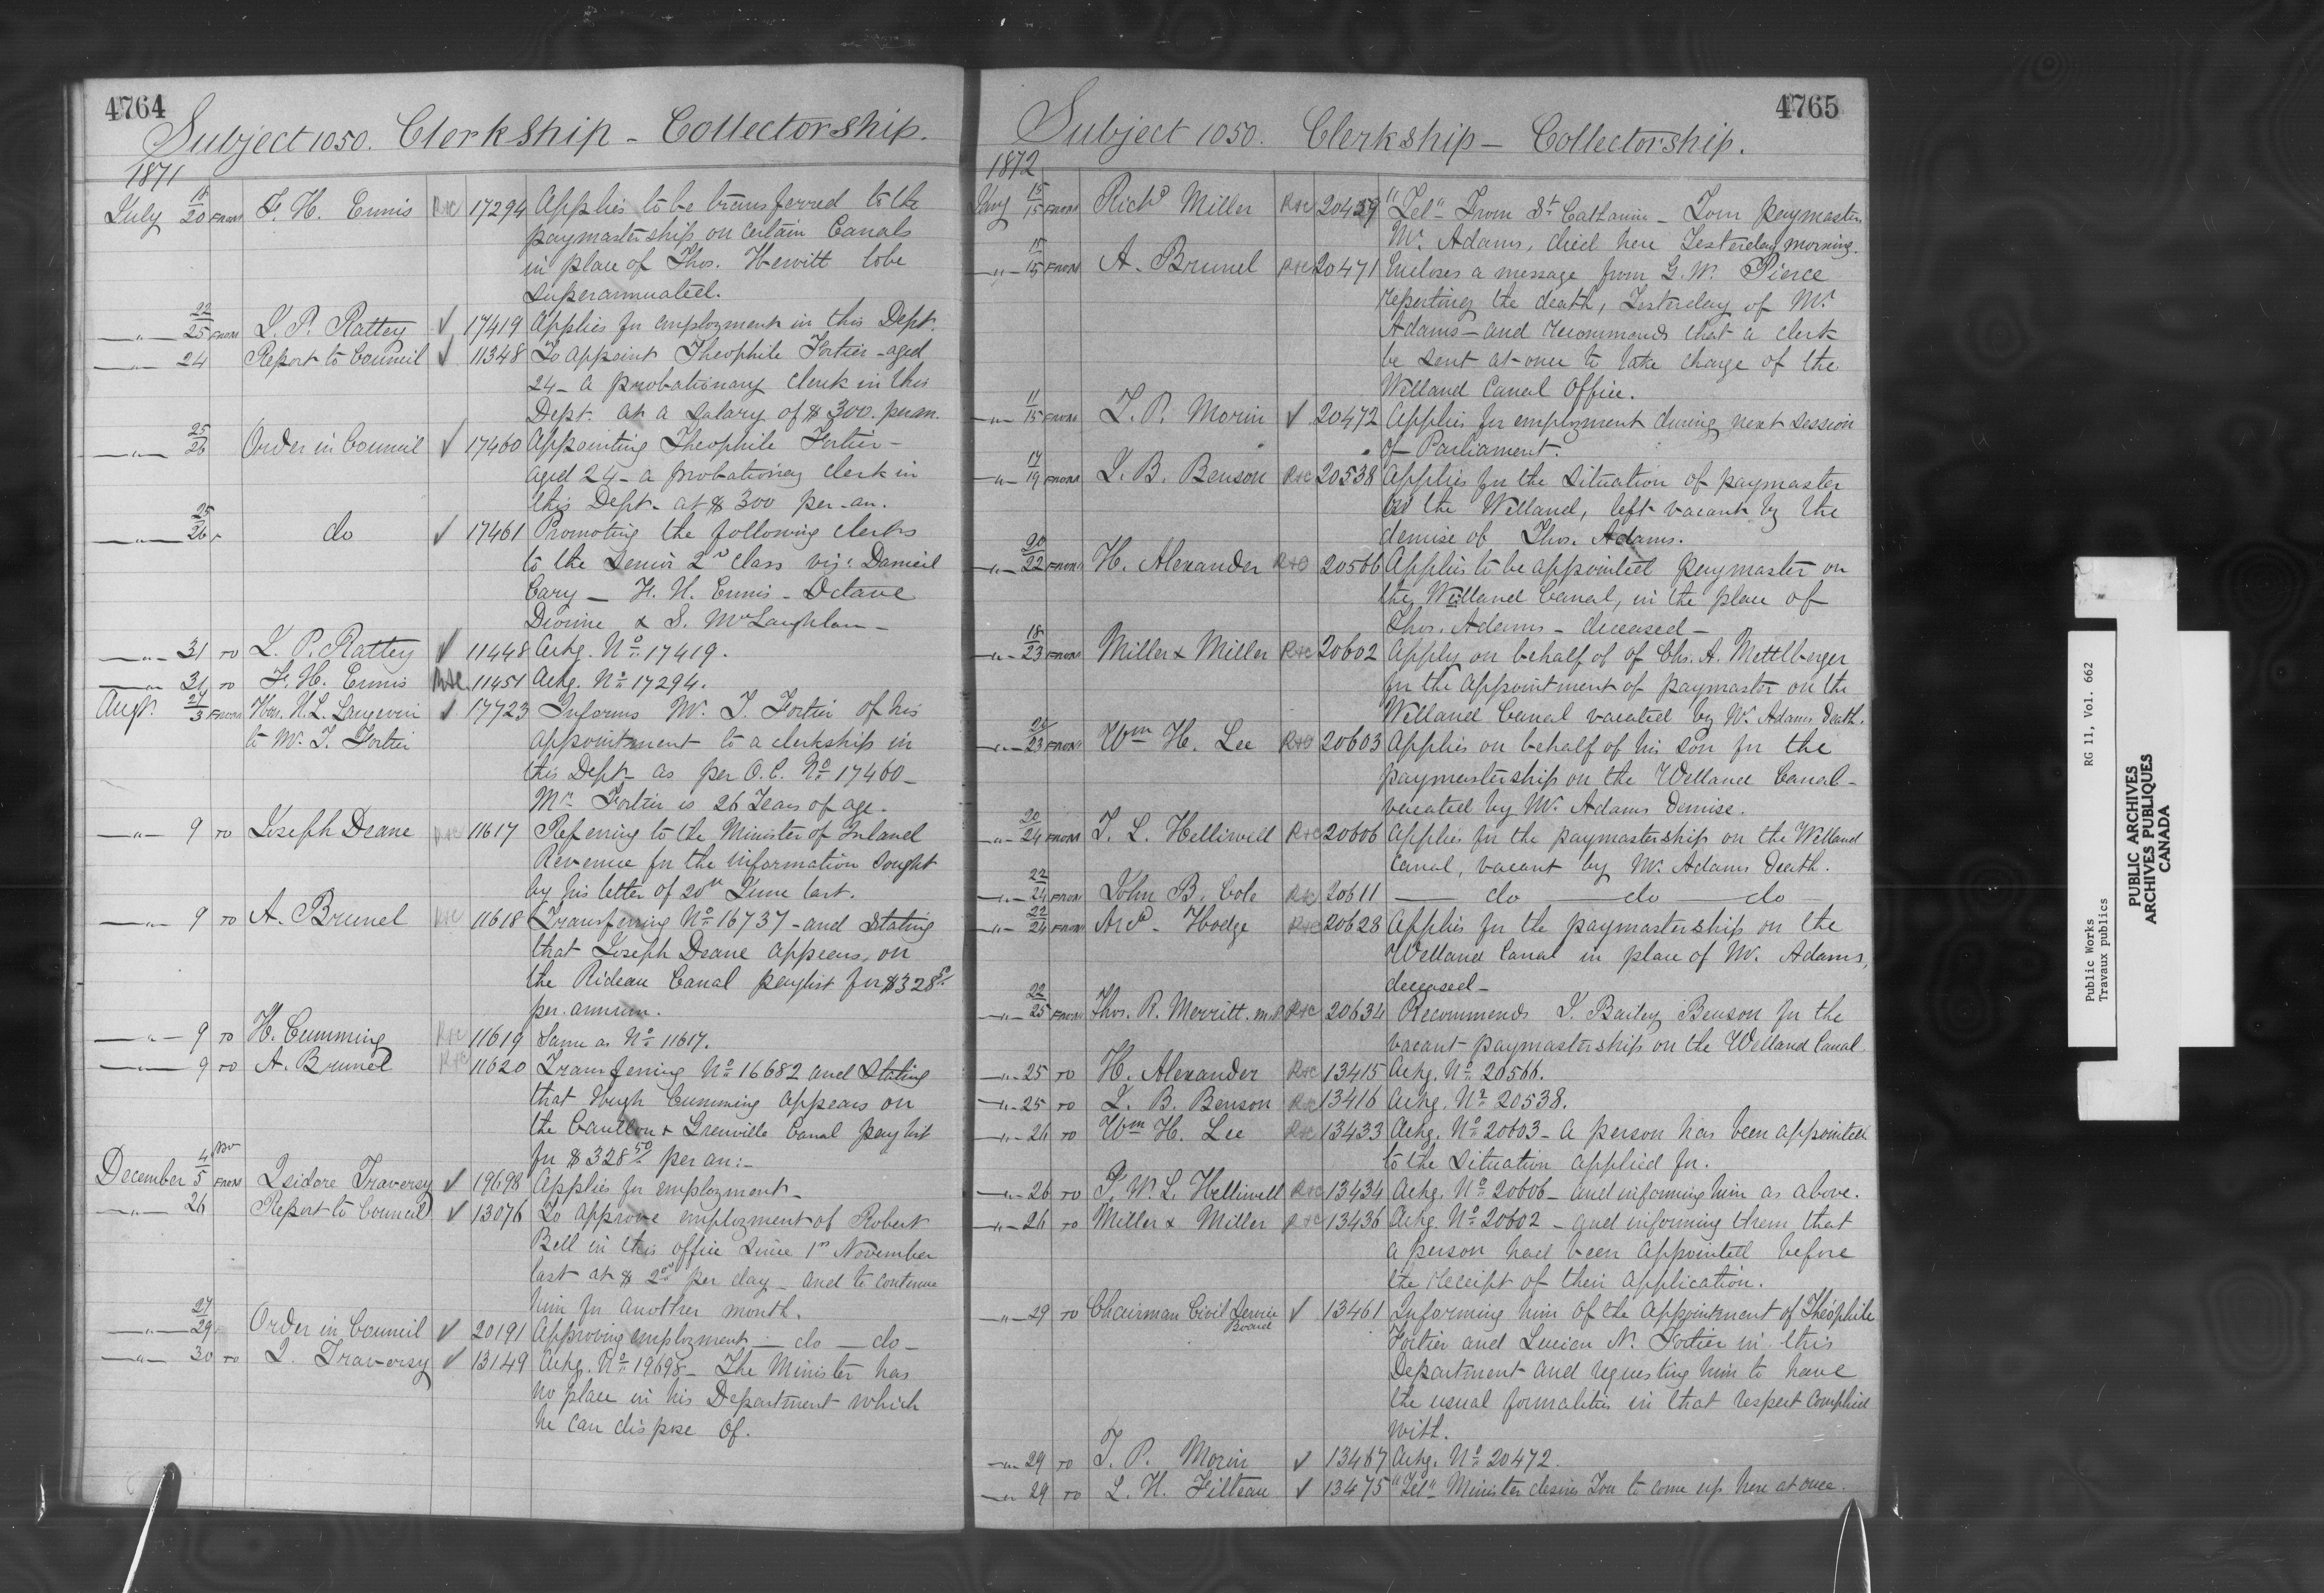 4764
Subject 1050. Clerkship - Collectorship.
1871
July 18/20 FROM F. H. Ennis R&C 17294 Applies to be transferred to the
paymastership on certain Canals
in place of Thos. Hewitt to be
superannuated.
—"— 22/25 FROM L. P. Rattey ✓ 17419 Applies for employment in this Dept.
—"— 24 Report to Council ✓ 11348 To appoint Theophile Fortier - aged
24 - a probationary clerk in this
Dept. at a salary of $300. per an.
—"— 25/26 Order in Council ✓ 17460 Appointing Theophile Fortier -
aged 24 - a probationary clerk in
this Dept. at $300 per an.
—"— 25/26 do ✓ 17461 Promoting the following clerks
to the Senior 2nd class viz: Damieil
Cary — F. H. Ennis - Octave
Dionne & S. McLaughlan -
—"— 31 TO L. P. Rattey ✓ 11448 Ackg. No. 17419.
—"— 31 TO F. H. Ennis R&C 11451 Ackg. No. 17294.
Augt. 27/3 FROM Hon. H. L. Langevin ✓ 17723 Informs Mr. T. Fortier of his
to Mr. T. Fortier appointment to a clerkship in
this Dept. as per O.C. No. 17460 -
Mr. Fortier is 26 Years of age.
—"— 9 TO Joseph Deane R&C 11617 Referring to the Minister of Inland
Revenue for the information sought
by his letter of 20th June last.
—"— 9 TO A. Brunel R&C 11618 Transferring No. 16737 - and stating
that Joseph Deane appears, on
the Rideau Canal paylist for $328 50
per annum.
—"— 9 TO H. Cumming R&C 11619 Same as No. 11617.
—"— 9 TO A. Brunel R&C 11620 Transferring No. 16682 and stating
that Hugh Cumming appears on
the Carillon & Grenville Canal paylist
for $328 50 per an:-
December 4 Nov/5 FROM Isidore Traversy ✓ 19698 Applies for employment -
—"— 26 Report to Council ✓ 13076 To approve employment of Robert
Bell in this office since 1st November
last at $2 00 per day - and to continue
him for another month.
—"— 27/29 Order in Council ✓ 20191 Approving employment — do — do -
—"— 30 TO I. Traversy ✓ 13149 Ackg. No. 19698 - The Minister has
no place in his Department which
he can dispose of.
4765
Subject 1050. Clerkship - Collectorship.
1872
Jany 15/15 FROM Richd Miller R&C 20459 "Tel" From St. Catharine - Tom paymaster
Mr. Adams, died here Yesterday morning.
—"— 15/15 FROM A. Brunel R&C 20471 Incloses a message from G. W. Pierce
reporting the death, Yesterday of Mr.
Adams - and recommends that a clerk
be sent at once to take charge of the
Welland Canal Office.
—"— 11/15 FROM T. P. Morin ✓ 20472 Applies for employment during next session
of Parliament.
—"— 17/19 FROM J. B. Benson R&C 20538 Applies for the situation of paymaster
on the Welland, left vacant by the
demise of Thos. Adams.
—"— 20/22 FROM H. Alexander R&C 20566 Applies to be appointed paymaster on
the Welland Canal, in the place of
Thos. Adams - deceased -
—"— 18/23 FROM Miller & Miller R&C 20602 Apply on behalf of of Chs. A. Mettlberger
for the appointment of paymaster on the
Welland Canal vacated by Mr. Adams death.
—"— 23 FROM Wm H. Lee R&C 20603 Applies on behalf of his son for the
paymastership on the Welland Canal -
vacated by Mr. Adams Demise.
—"— 20/24 FROM T. L. Helliwell R&C 20606 Applies for the paymastership on the Welland
Canal, vacant by Mr. Adams Death.
—"— 22/24 FROM John B. Cole R&C 20611 — do — do — do
—"— 22/24 FROM Arcd. Hodge R&C 20628 Applies for the paymastership on the
Welland Canal in place of Mr. Adams,
deceased -
—"— 22/25 FROM Thos. R. Merritt. m.P R&C 20634 Recommends J. Bailey Benson for the
vacant paymastership on the Welland Canal
—"— 25 TO H. Alexander R&C 13415 Ackg. No. 20566.
—"— 25 TO J. B. Benson R&C 13416 Ackg. No. 20538.
—"— 26 TO Wm H. Lee R&C 13433 Ackg. No. 20603 - A person has been appointed
to the situation applied for.
—"— 26 TO F. W. L. Helliwell R&C 13434 Ackg. No. 20606 - and informing him as above.
—"— 26 TO Miller & Miller R&C 13436 Ackg. No. 20602 - and informing them that
a person had been appointed before
the receipt of their application.
—"— 29 TO Chairman Civil Service Board ✓ 13461 Informing him of the appointment of Théophile
Fortier and Lucien N. Fortier in this
Department and requesting him to have
the usual formalities in that respect complied
with.
—"— 29 TO T. P. Morin ✓ 13467 Ackg. No. 20472.
—"— 29 TO L. H. Filteau ✓ 13475 "Tel" Minister desires You to come up here at once.
Public Works
Travaux publics
RG 11, Vol. 662
PUBLIC ARCHIVES
ARCHIVES PUBLIQUES
CANADA